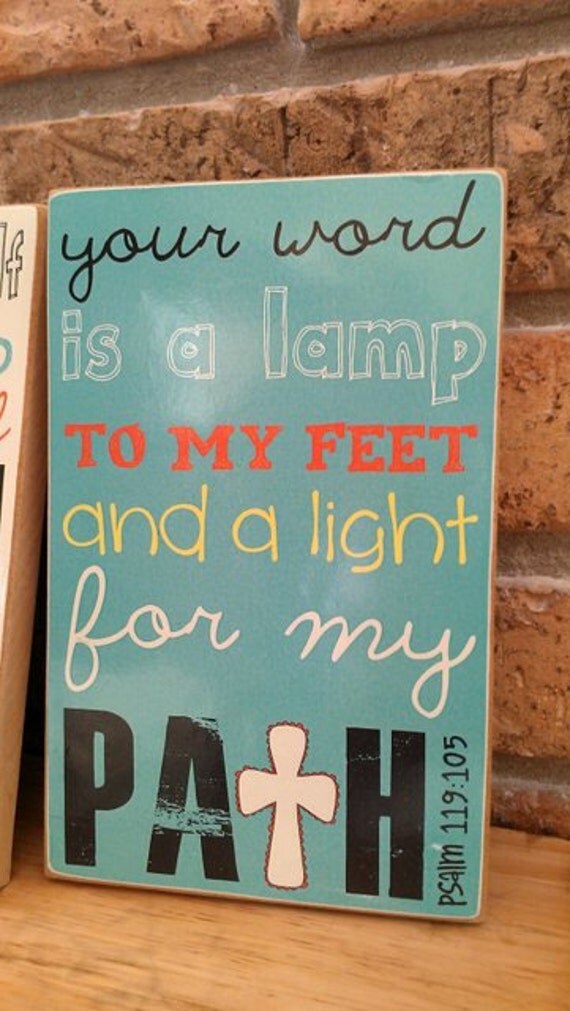 your word
is a lamp
TO MY FEET
and a light
for my
PATH
Psalm 119:105
lf